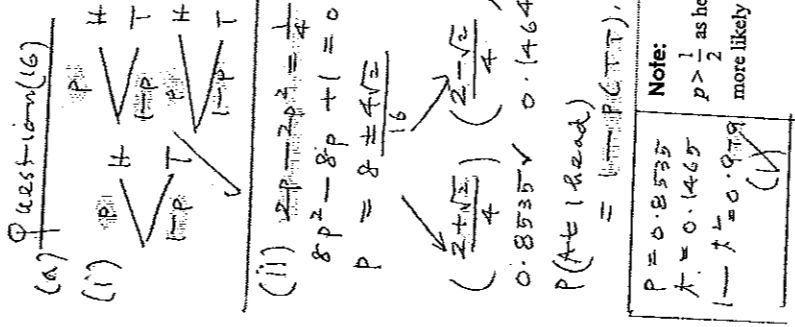 (a) Question (16)
(i) p H p H
1-p T
1-p T p H
1-p T
(ii) 2p - 2p² = 1/4
8p² - 8p + 1 = 0
p = (8 ± 4√2)/16
((2+√2)/4) ((2-√2)/4)
0.8535 ✓ 0.1464
P(At 1 head)
= 1 - P(TT).
P = 0.8535
t = 0.1465
1 - t² = 0.979
(1)
Note:
p > 1/2 as he
more likely